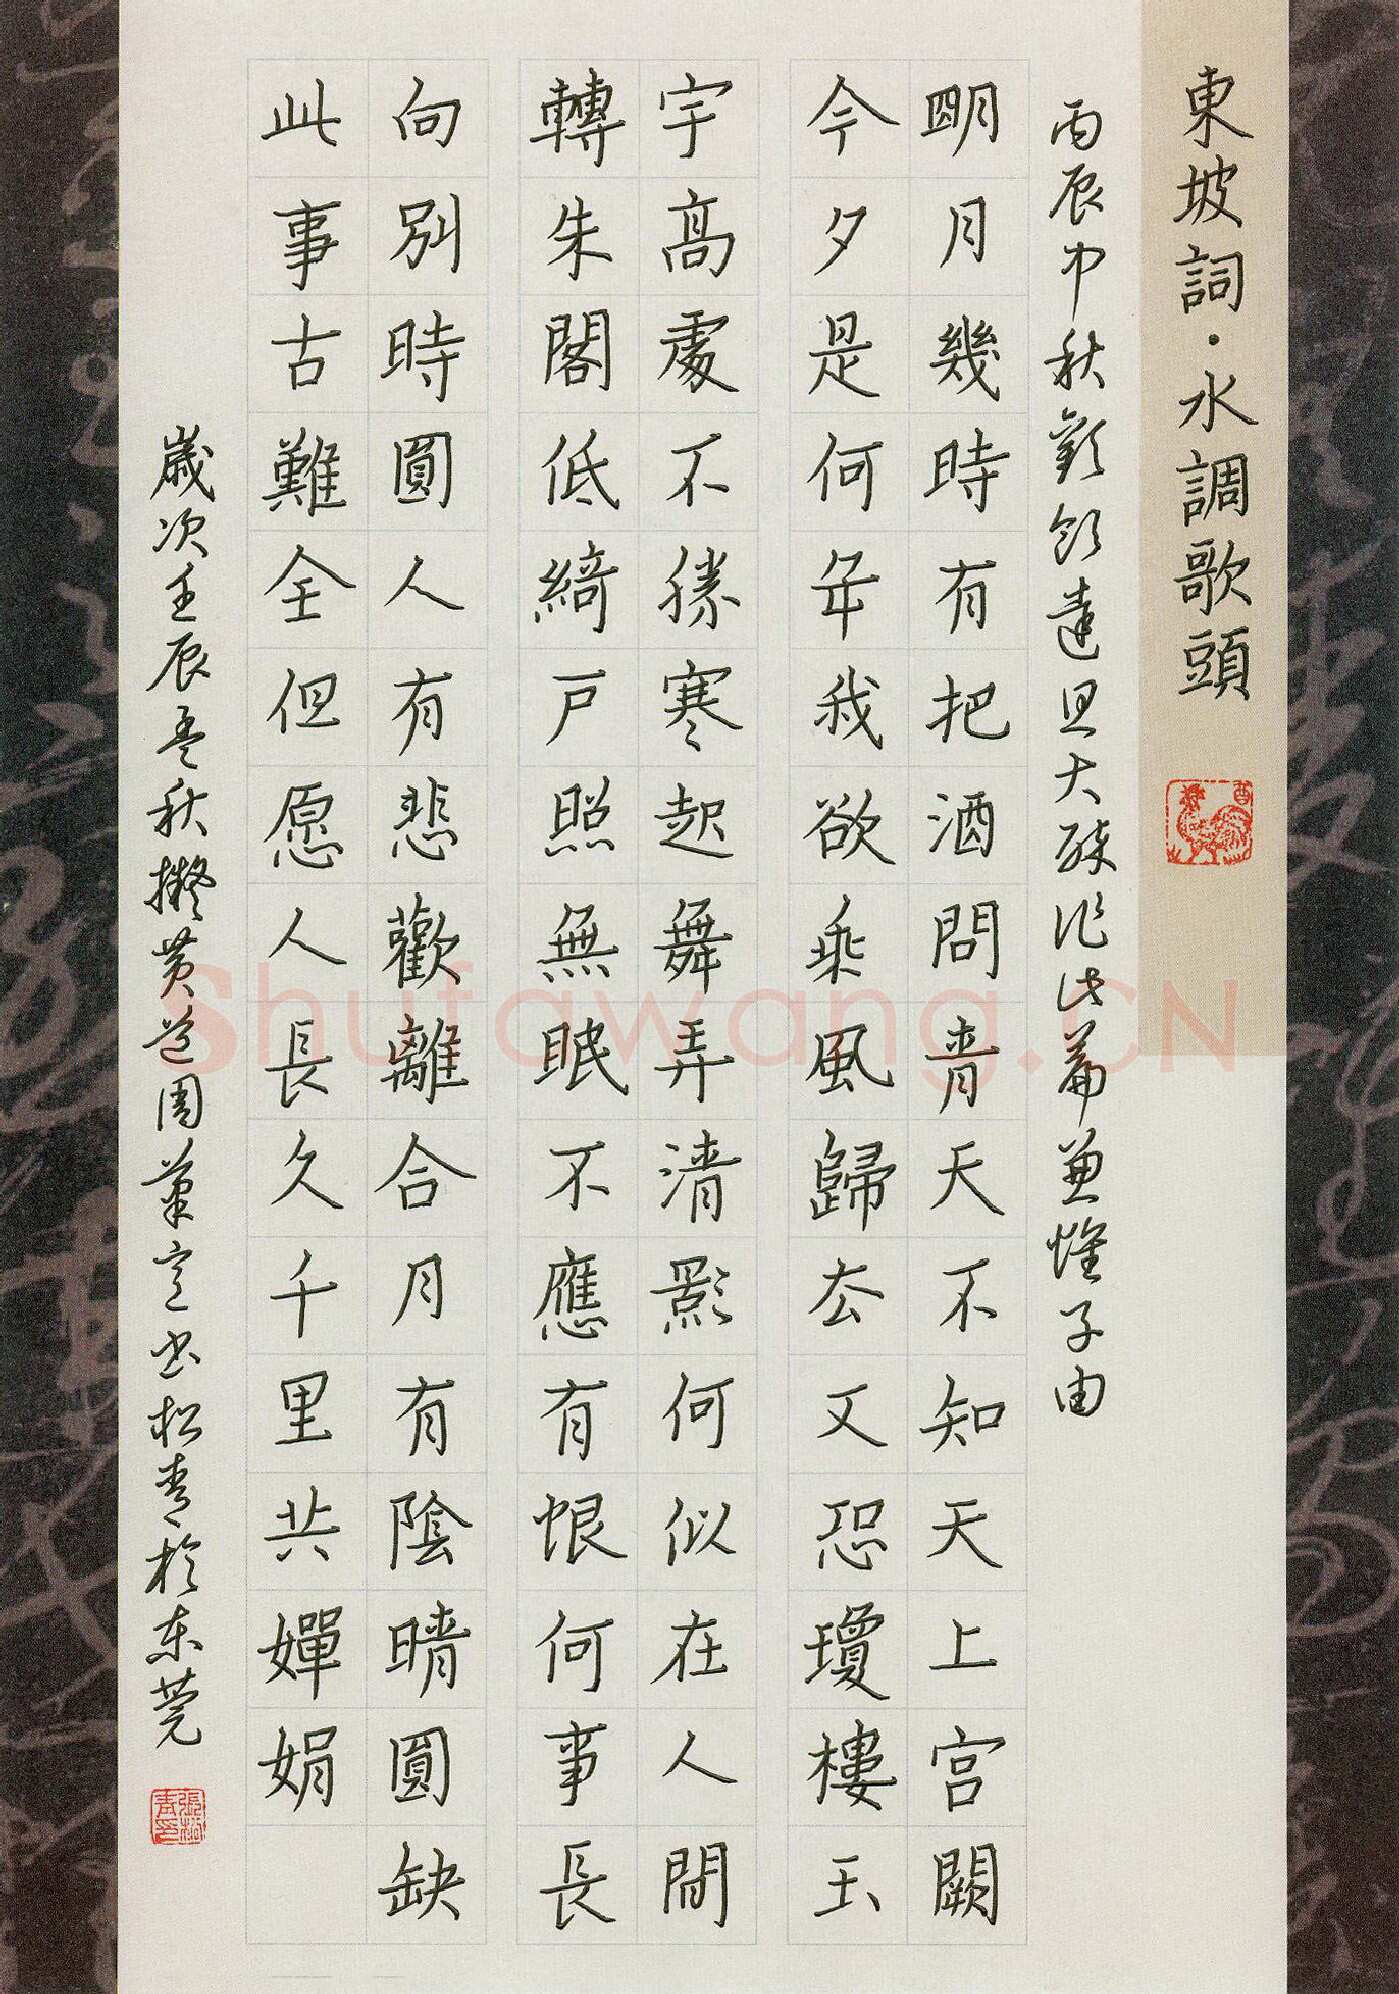 東坡詞·水調歌頭
丙辰中秋歡飲達旦大醉作此篇兼懷子由
明月幾時有把酒問青天不知天上宮闕
今夕是何年我欲乘風歸去又恐瓊樓玉
宇高處不勝寒起舞弄清影何似在人間
轉朱閣低綺戶照無眠不應有恨何事長
向別時圓人有悲歡離合月有陰晴圓缺
此事古難全但愿人長久千里共嬋娟
歲次壬辰孟秋擬黃道周筆意書松青於东莞
Shufawang.CN